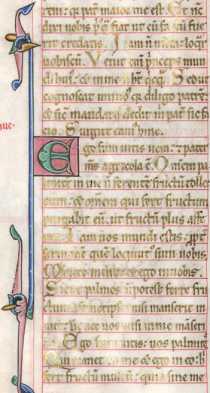 rem: qr pat̄ maior me est. Et n̄c
dixi nobis p̄q̄ fiat ut cū fc̄ū fue
rit credatis. Iam n̄ mlta loqr̄
uobiscū. Venit eni p̄nceps mun
di hui᷒. & in me n̄ ht̄ qcq̄. Sed ut
cognoscat mund᷒ q̄ diligo patrē:
& sic̄ mandatū dedit m̄ pat̄ sic fa
cio. Surgite eam᷒ hinc.
que·
Ego sum uitis uera: & pater
ms̄ agricola ē. Om̄em pal
mite in me n̄ ferente fructū tollet
eum: & omem qui fert fructum
purgabit eū. ut fructū plus affe
rat. Iam uos mundi estis. ppt̄
sermone que locut᷒ sum uobis.
Manete in me: & ego in uobis.
Sicut palmes n̄ potest ferre fru
ctum a semetipso nisi manserit in
uite: sic nec uos nisi in me māseri
tis. Ego sum uitis: uos palmites.
Qui manet in me & ego in eo: h̄
fert fructū multū: quia sine me